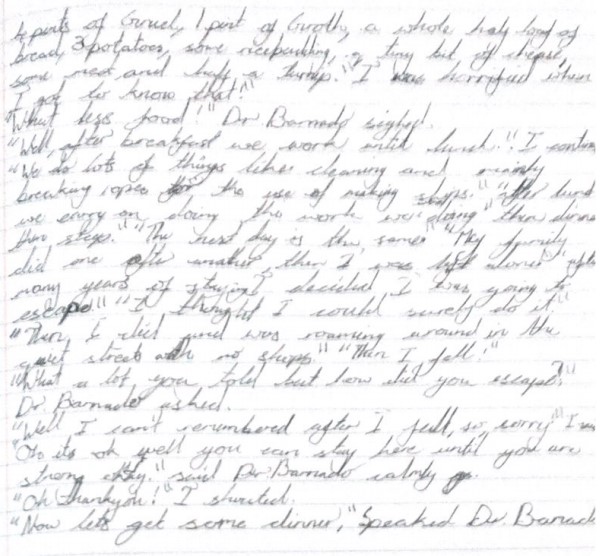 4 pints of Gruel, 1 pint of broth, a whole half loaf of
bread, 3 potatoes, some ricepudding, a tiny bit of cheese,
some meat and half a turnip." "I was horrified when
I got to know that!"
"What less food!" Dr Barnado sighed.
"Well, after breakfast we work until lunch." I
"We do lots of things like cleaning and mainly
breaking ropes for the use of making ships."
we carry on doing the work we doing" then dinner
then sleep." "The next day is the same" "My family
did one after another, then I was left alone" after
many years of staying I decided I was going to
escape" "I thought I could surely do it"
"Then, I did and was roaming around in the
quiet streets with no shops" "Then I fell!"
"What a lot you told but how did you escape?"
Dr Barnado asked.
"Well I can't remembered after I fell, so, sorry" I
"Oh its ok well you can stay here until you are
strong okay." said Dr Barnado calmly
"Oh thankyou!" I shouted.
"Now lets get some dinner," speaked Dr Barnado